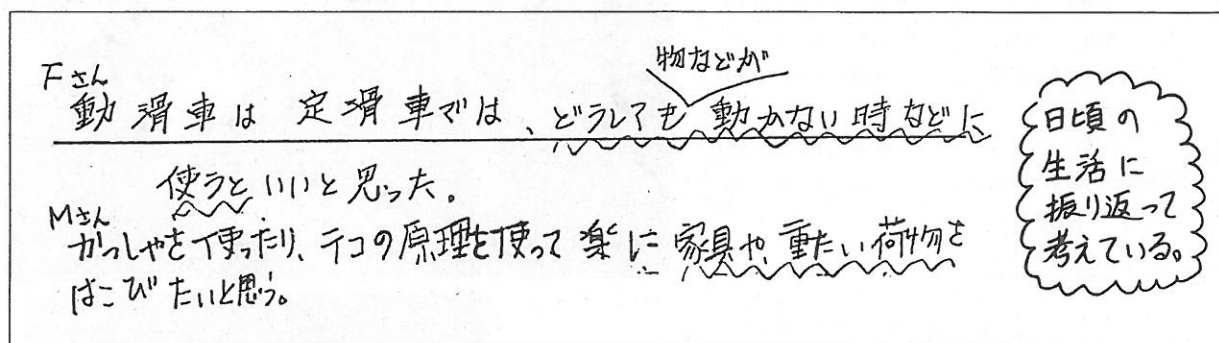 Fさん
物などが
動滑車は 定滑車では、どうしても 動かない時などに
使うと いいと思った。
Mさん
かっしゃを使ったり、テコの原理を使って楽に 家具や、重たい荷物を
はこびたいと思う。
日頃の
生活に
振り返って
考えている。